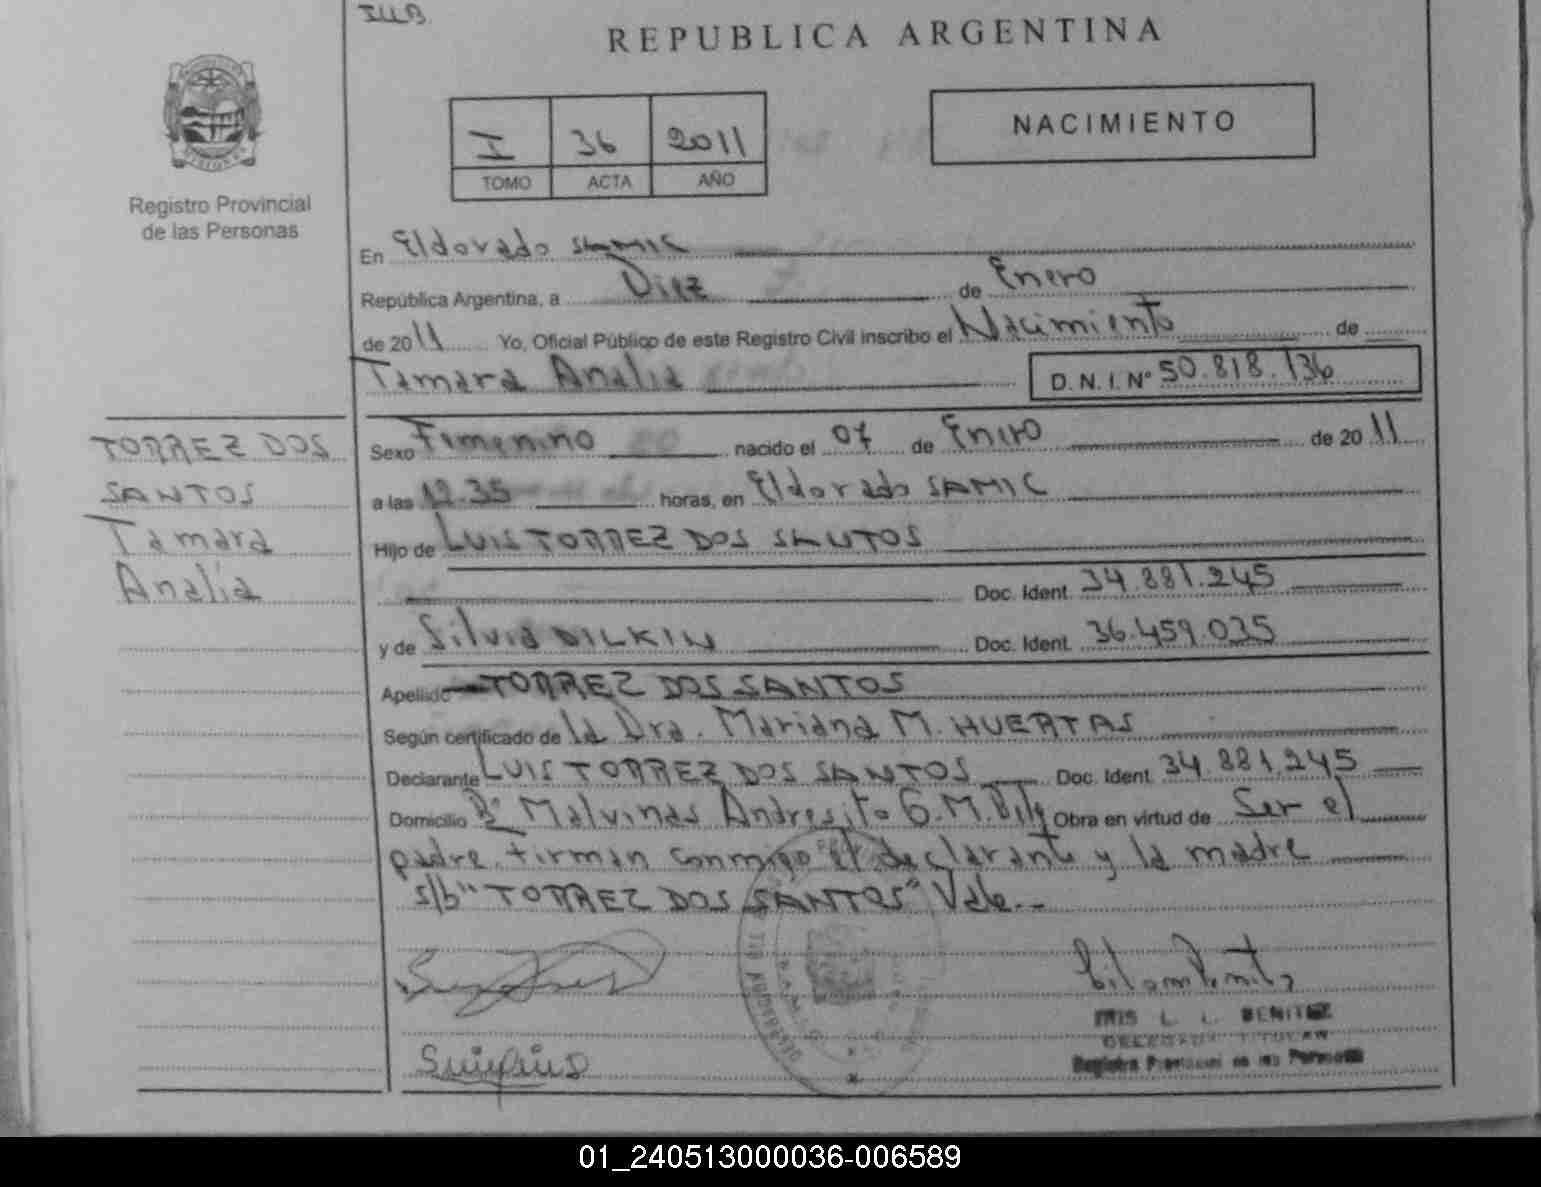 REPUBLICA ARGENTINA
I 36 2011
TOMO ACTA AÑO
NACIMIENTO
Registro Provincial
de las Personas
En Eldorado SAMIC
República Argentina, a Diez de Enero
de 2011 Yo, Oficial Público de este Registro Civil inscribo el Nacimiento de
Tamara Analia D. N. I. N° 50.818.136
TORREZ DOS
SANTOS
Tamara
Analia
Sexo Femenino nacido el 07 de Enero de 2011
a las 12.35 horas, en Eldorado SAMIC
Hijo de LUIS TORREZ DOS SANTOS
Doc. Ident. 34.881.245
y de Silvia DILKIN Doc. Ident. 36.459.035
Apellido TORREZ DOS SANTOS
Según certificado de la Dra. Mariana M. HUERTAS
Declarante LUIS TORREZ DOS SANTOS Doc. Ident. 34.881.245
Domicilio B° Malvinas Andresito G.M. Obra en virtud de Ser el
padre. firman conmigo el declarante y la madre
s/b "TORREZ DOS SANTOS" Vale.-
IRIS L. L. BENITEZ
DELEGADA TITULAR
Registro Provincial de las Personas
01_240513000036-006589